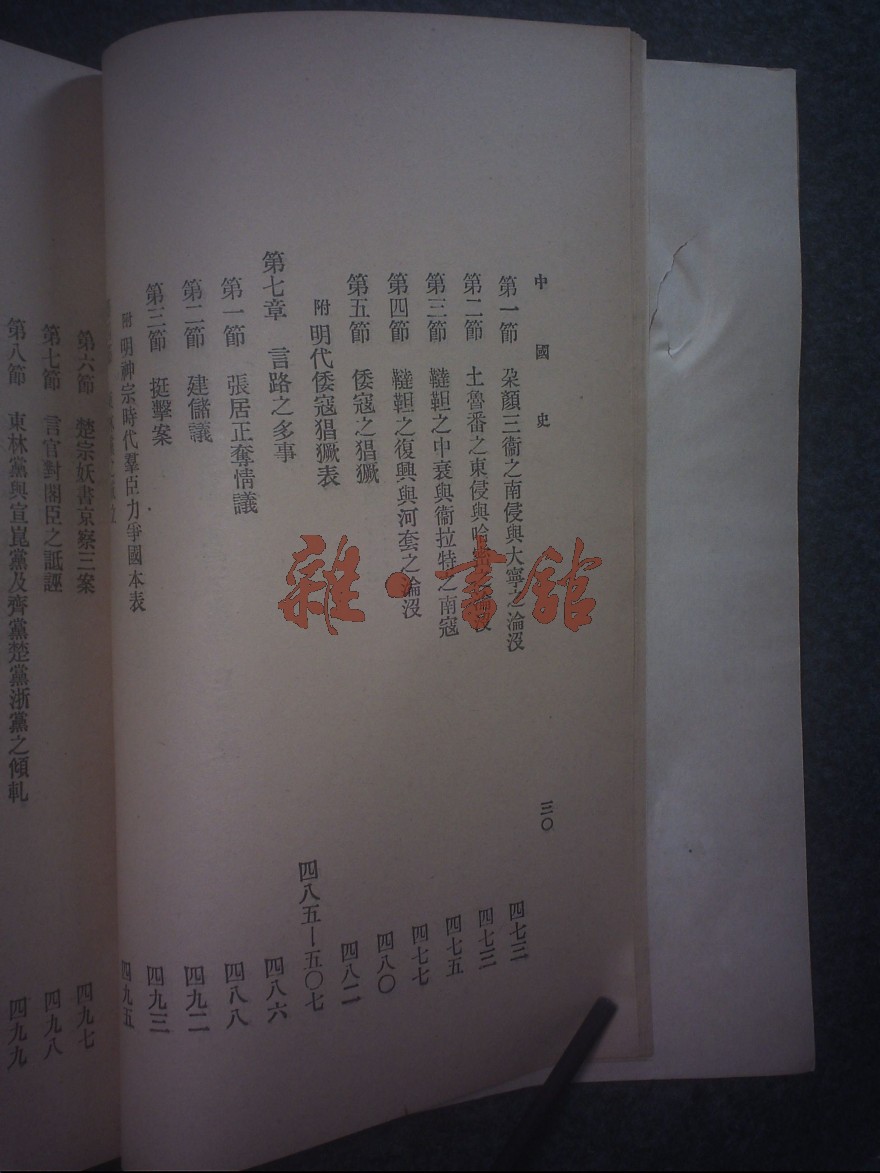 中國史 三〇
第一節 朶顏三衞之南侵與大寧之淪沒 四七三
第二節 土魯番之東侵與哈密之淪沒 四七三
第三節 韃靼之中衰與衞拉特之南寇 四七五
第四節 韃靼之復興與河套之淪沒 四七七
第五節 倭寇之猖獗 四八〇
附 明代倭寇猖獗表 四八二
第七章 言路之多事 四八五—五〇七
第一節 張居正奪情議 四八六
第二節 建儲議 四八八
第三節 挺擊案 四九二
附 明神宗時代羣臣力爭國本表 四九三
四九五
第六節 楚宗妖書京察三案 四九七
第七節 言官對閣臣之詆誣 四九八
第八節 東林黨與宣崑黨及齊黨楚黨浙黨之傾軋 四九九
雜·書館